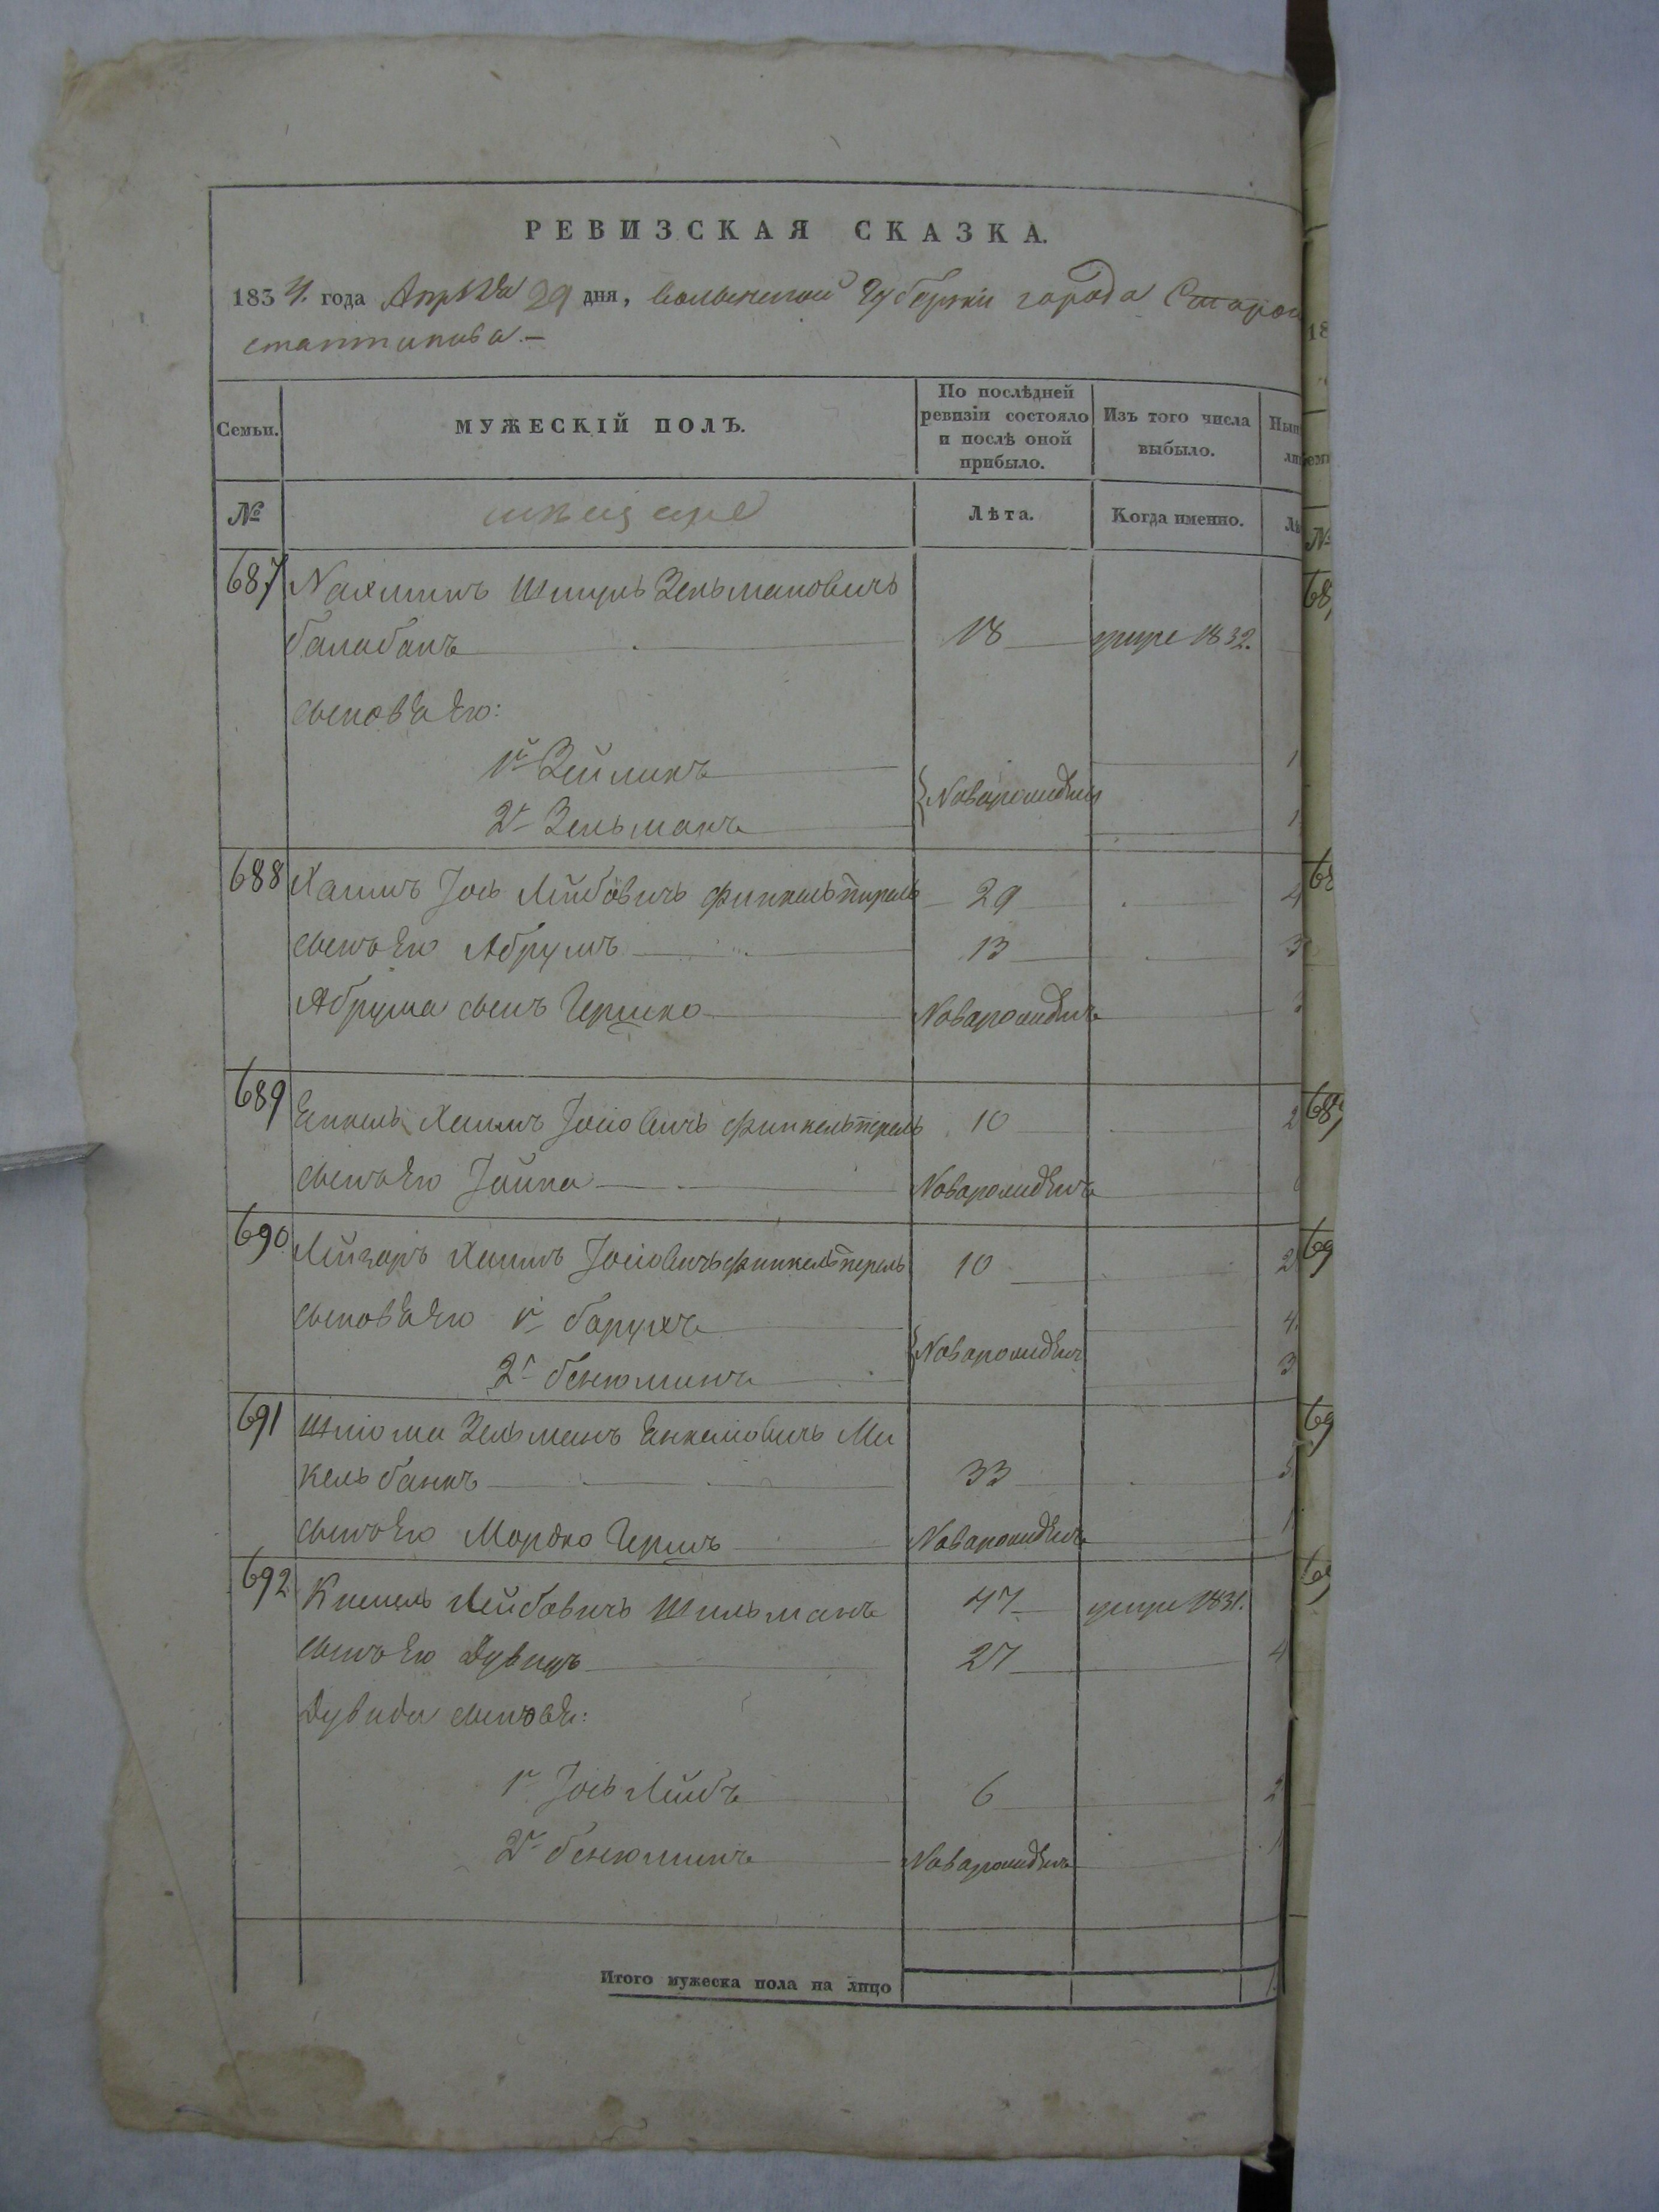 РЕВИЗСКАЯ СКАЗКА.
1834. года Апреля 29 дня, Волынской Губернии города Старокон
стантинова.—
Семьи.
МУЖЕСКІЙ ПОЛЪ.
По послѣдней ревизіи состояло и послѣ оной прибыло.
Изъ того числа выбыло.
№
мѣщане
Лѣта.
Когда именно.
687 Нахманъ Шмуль Зельмановичъ
балабанъ 18 умре 1832.
сыновья Его:
1й Зейликъ 1
2й Зельманъ Новорожденъ 1
688 Хаимъ Іось Лейбовичъ Финкельштирель 29 4
сынъ Его Абрумъ 13 3
Абрума сынъ Гершко Новорожденъ
689 Янкель Хаимъ Іосіовичъ Финкельперель 10 2
сынъ Его Іойна Новорожденъ
690 Лейзоръ Хаимъ Іосіовичъ Финкельперель 10 2
сыновья Его 1й барухъ Новорожден 4
2й бенюминъ 3
691 Шлиома Зельманъ Янкелиовичъ Ми
кельбанкъ 33 5
сынъ Его Мордко Гершъ Новорожденъ 1
692 Кисель Лейбовичъ Шильманъ 47 умре 1831.
сынъ Его Дувидъ 27 4
Дувида сыновья:
1й Іось Лейбъ 6 2
2й бенюминъ Новорожденъ 1
Итого мужеска пола на лицо